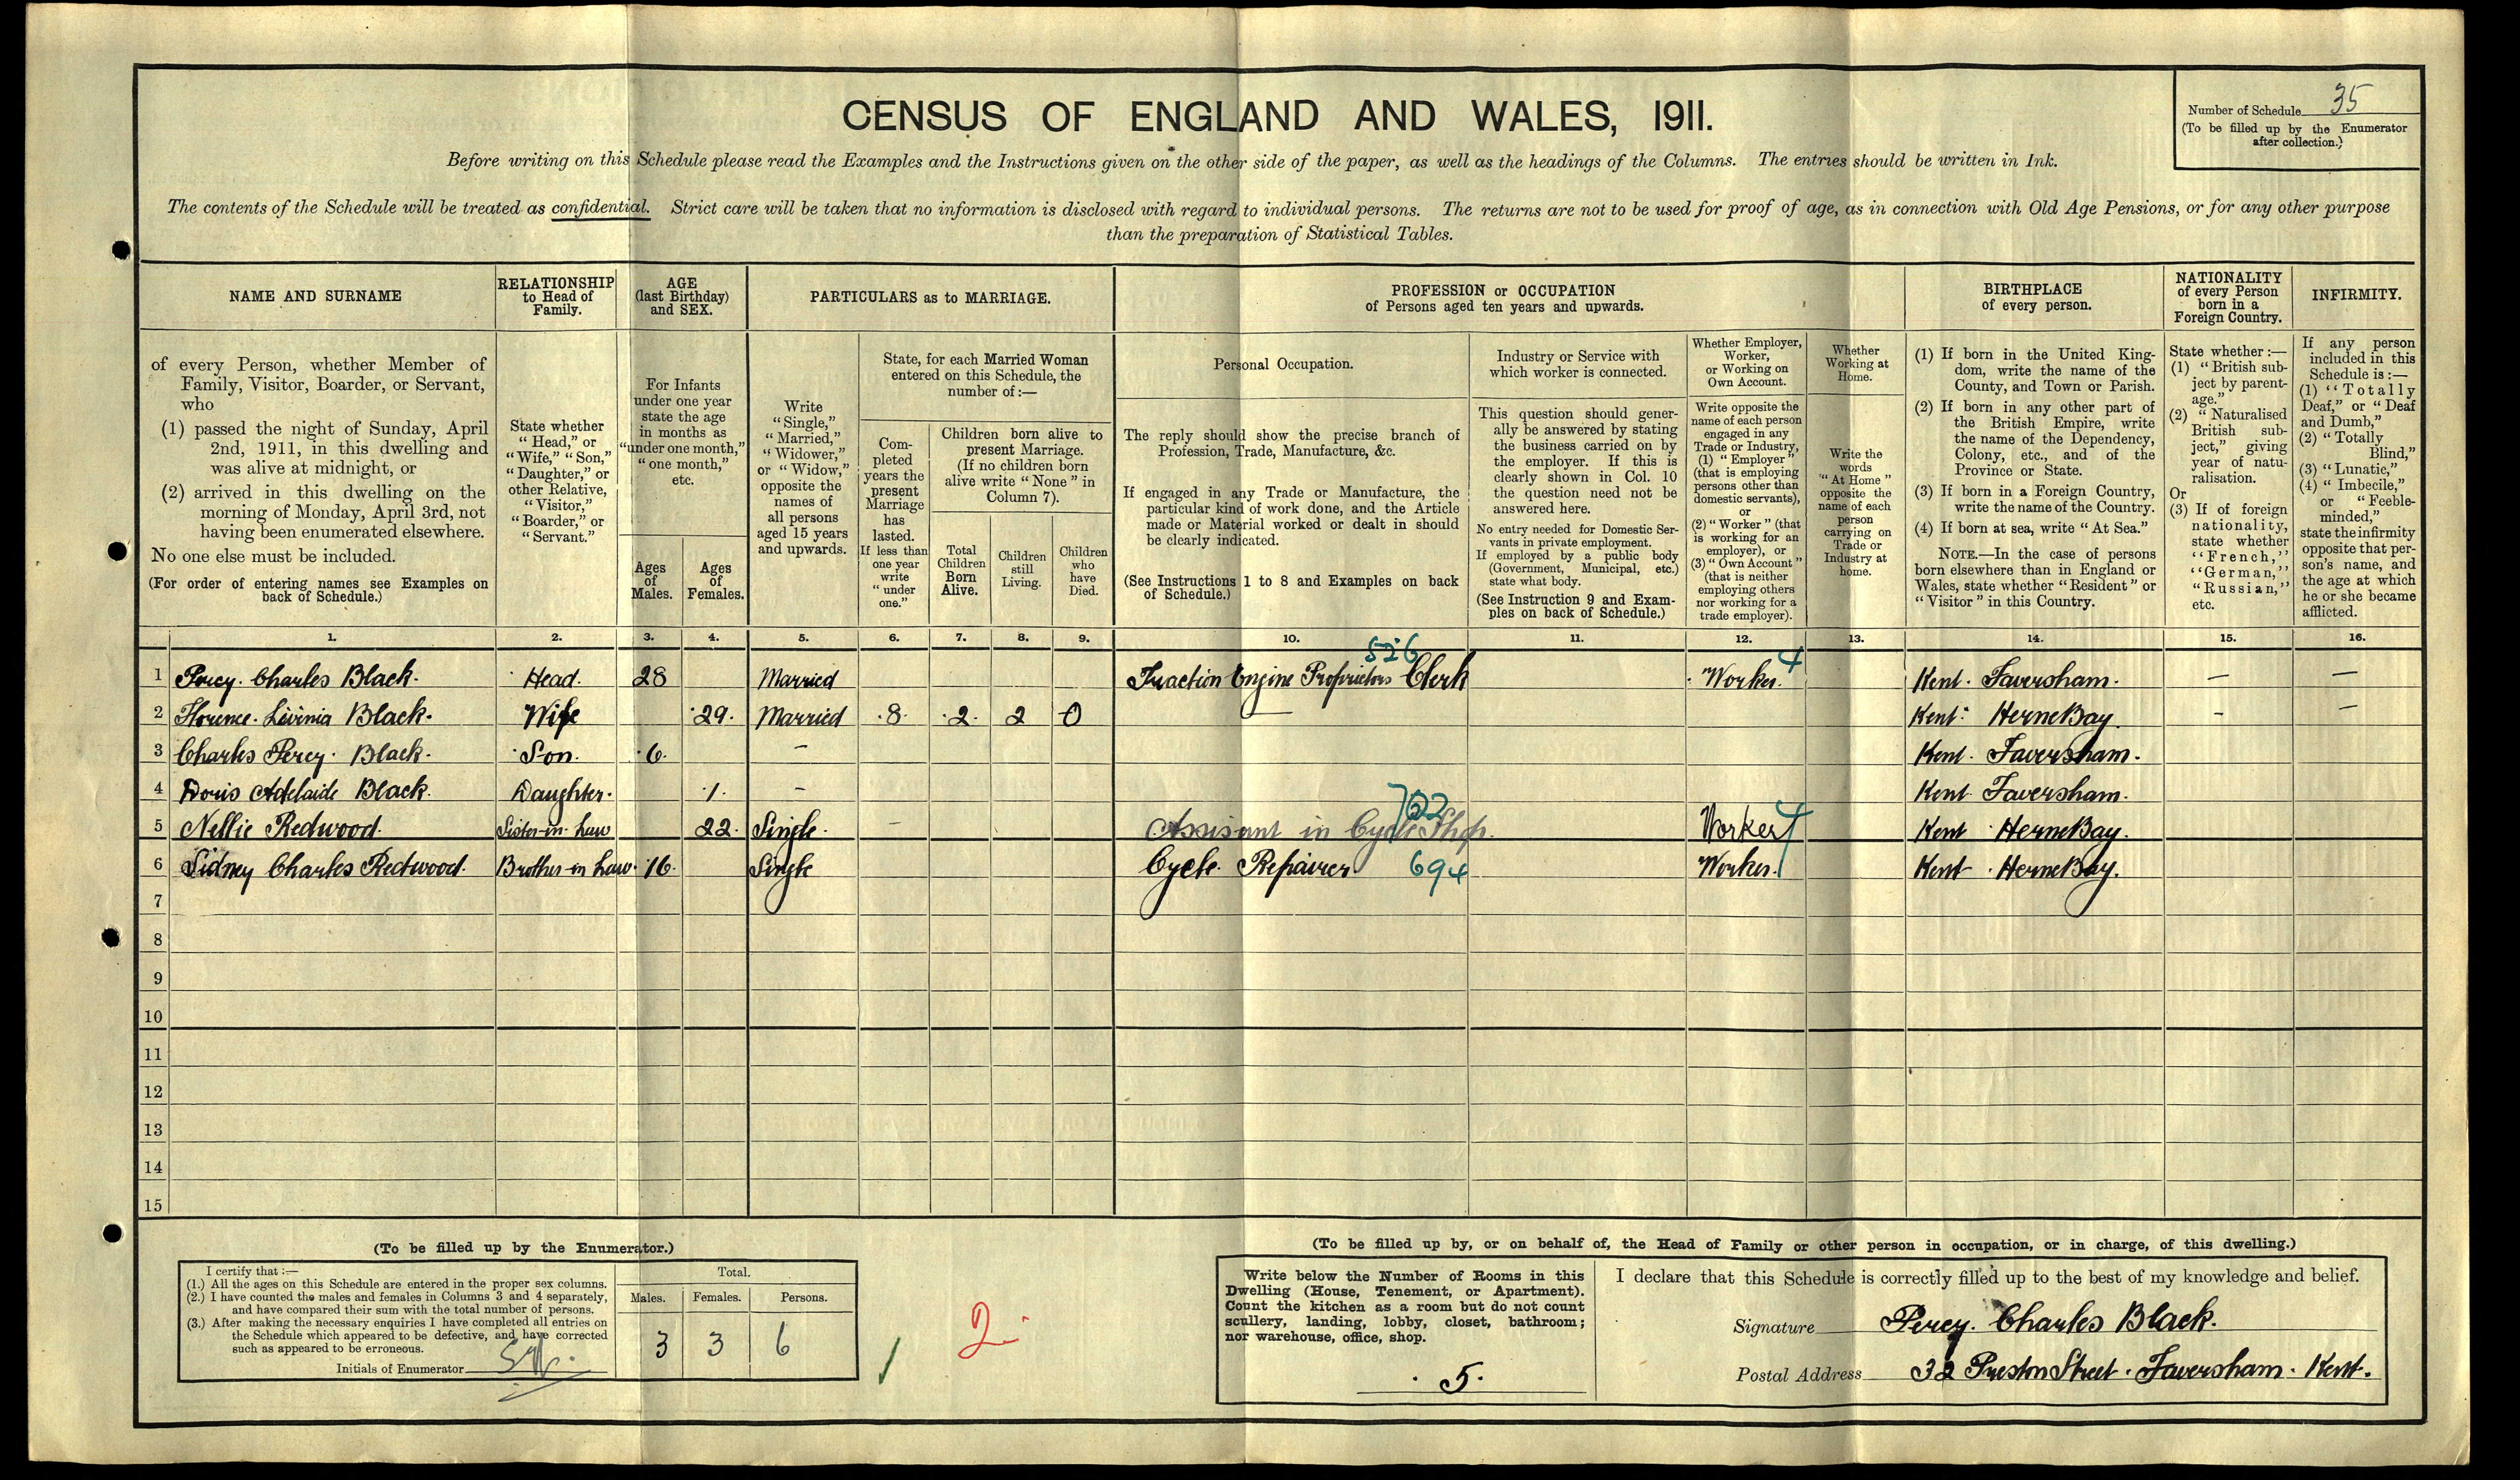 CENSUS OF ENGLAND AND WALES, 1911.
Number of Schedule 35
(To be filled up by the Enumerator
after collection.)
Before writing on this Schedule please read the Examples and the Instructions given on the other side of the paper, as well as the headings of the Columns. The entries should be written in Ink.
The contents of the Schedule will be treated as confidential. Strict care will be taken that no information is disclosed with regard to individual persons. The returns are not to be used for proof of age, as in connection with Old Age Pensions, or for any other purpose
than the preparation of Statistical Tables.
NAME AND SURNAME
of every Person, whether Member of
Family, Visitor, Boarder, or Servant,
who
(1) passed the night of Sunday, April
2nd, 1911, in this dwelling and
was alive at midnight, or
(2) arrived in this dwelling on the
morning of Monday, April 3rd, not
having been enumerated elsewhere.
No one else must be included.
(For order of entering names see Examples on
back of Schedule.)
RELATIONSHIP
to Head of
Family.
State whether
"Head," or
"Wife," "Son,"
"Daughter," or
other Relative,
"Visitor,"
"Boarder," or
"Servant."
AGE
(last Birthday)
and SEX.
For Infants
under one year
state the age
in months as
"under one month,"
"one month,"
etc.
Ages
of
Males.
Ages
of
Females.
PARTICULARS as to MARRIAGE.
Write
"Single,"
"Married,"
"Widower,"
or "Widow,"
opposite the
names of
all persons
aged 15 years
and upwards.
State, for each Married Woman
entered on this Schedule, the
number of:—
Com-
pleted
years the
present
Marriage
has
lasted.
If less than
one year
write
"under
one."
Children born alive to
present Marriage.
(If no children born
alive write "None" in
Column 7).
Total
Children
Born
Alive.
Children
still
Living.
Children
who
have
Died.
PROFESSION or OCCUPATION
of Persons aged ten years and upwards.
Personal Occupation.
The reply should show the precise branch of
Profession, Trade, Manufacture, &c.
If engaged in any Trade or Manufacture, the
particular kind of work done, and the Article
made or Material worked or dealt in should
be clearly indicated.
(See Instructions 1 to 8 and Examples on back
of Schedule.)
Industry or Service with
which worker is connected.
This question should gener-
ally be answered by stating
the business carried on by
the employer. If this is
clearly shown in Col. 10
the question need not be
answered here.
No entry needed for Domestic Ser-
vants in private employment.
If employed by a public body
(Government, Municipal, etc.)
state what body.
(See Instruction 9 and Exam-
ples on back of Schedule.)
Whether Employer,
Worker,
or Working on
Own Account.
Write opposite the
name of each person
engaged in any
Trade or Industry,
(1) "Employer"
(that is employing
persons other than
domestic servants),
or
(2) "Worker" (that
is working for an
employer), or
(3) "Own Account"
(that is neither
employing others
nor working for a
trade employer).
Whether
Working at
Home.
Write the
words
"At Home"
opposite the
name of each
person
carrying on
Trade or
Industry at
home.
BIRTHPLACE
of every person.
(1) If born in the United King-
dom, write the name of the
County, and Town or Parish.
(2) If born in any other part of
the British Empire, write
the name of the Dependency,
Colony, etc., and of the
Province or State.
(3) If born in a Foreign Country,
write the name of the Country.
(4) If born at sea, write "At Sea."
NOTE.—In the case of persons
born elsewhere than in England or
Wales, state whether "Resident" or
"Visitor" in this Country.
NATIONALITY
of every Person
born in a
Foreign Country.
State whether:—
(1) "British sub-
ject by parent-
age."
(2) "Naturalised
British sub-
ject," giving
year of natu-
ralisation.
Or
(3) If of foreign
nationality,
state whether
"French,"
"German,"
"Russian,"
etc.
INFIRMITY.
If any person
included in this
Schedule is:—
(1) "Totally
Deaf," or "Deaf
and Dumb,"
(2) "Totally
Blind,"
(3) "Lunatic,"
(4) "Imbecile,"
or "Feeble-
minded,"
state the infirmity
opposite that per-
son's name, and
the age at which
he or she became
afflicted.
1. 2. 3. 4. 5. 6. 7. 8. 9. 10. 11. 12. 13. 14. 15. 16.
526
1 Percy. Charles Black. Head. 28 Married Traction Engine Proprietors Clerk Worker. 4 Kent. Faversham. — —
2 Florence. Livinia Black. Wife 29. Married 8. 2. 2 0 Kent. Herne Bay. — —
3 Charles Percy. Black. Son. 6. — Kent. Faversham.
4 Doris Adelaide Black. Daughter. 1. — Kent. Faversham.
722
5 Nellie Redwood. Sister-in-Law 22. Single. — Assisant in Cycle Shop. Worker 4 Kent Herne Bay.
6 Sidney Charles Redwood. Brother-in Law. 16. Single Cycle. Repairer 694 Worker. Kent Herne Bay.
7
8
9
10
11
12
13
14
15
(To be filled up by the Enumerator.)
I certify that:—
(1.) All the ages on this Schedule are entered in the proper sex columns.
(2.) I have counted the males and females in Columns 3 and 4 separately,
and have compared their sum with the total number of persons.
(3.) After making the necessary enquiries I have completed all entries on
the Schedule which appeared to be defective, and have corrected
such as appeared to be erroneous.
Initials of Enumerator
Total.
Males. Females. Persons.
3 3 6
2
(To be filled up by, or on behalf of, the Head of Family or other person in occupation, or in charge, of this dwelling.)
Write below the Number of Rooms in this
Dwelling (House, Tenement, or Apartment).
Count the kitchen as a room but do not count
scullery, landing, lobby, closet, bathroom;
nor warehouse, office, shop.
5.
I declare that this Schedule is correctly filled up to the best of my knowledge and belief.
Signature Percy. Charles Black.
Postal Address 32 Preston Street. Faversham. Kent.